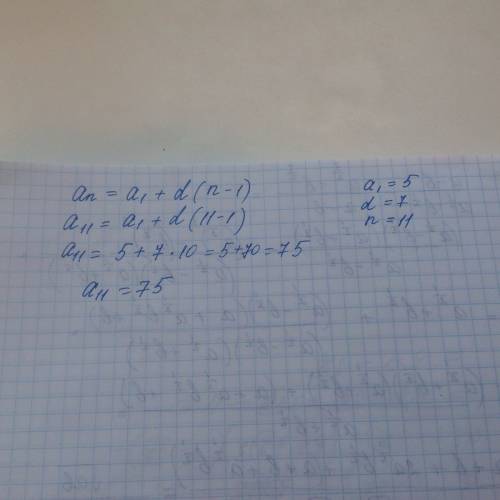 aₙ = a₁ + d(n-1)
a₁₁ = a₁ + d(11-1)
a₁₁ = 5 + 7 · 10 = 5+70 = 75
a₁₁ = 75
a₁ = 5
d = 7
n = 11